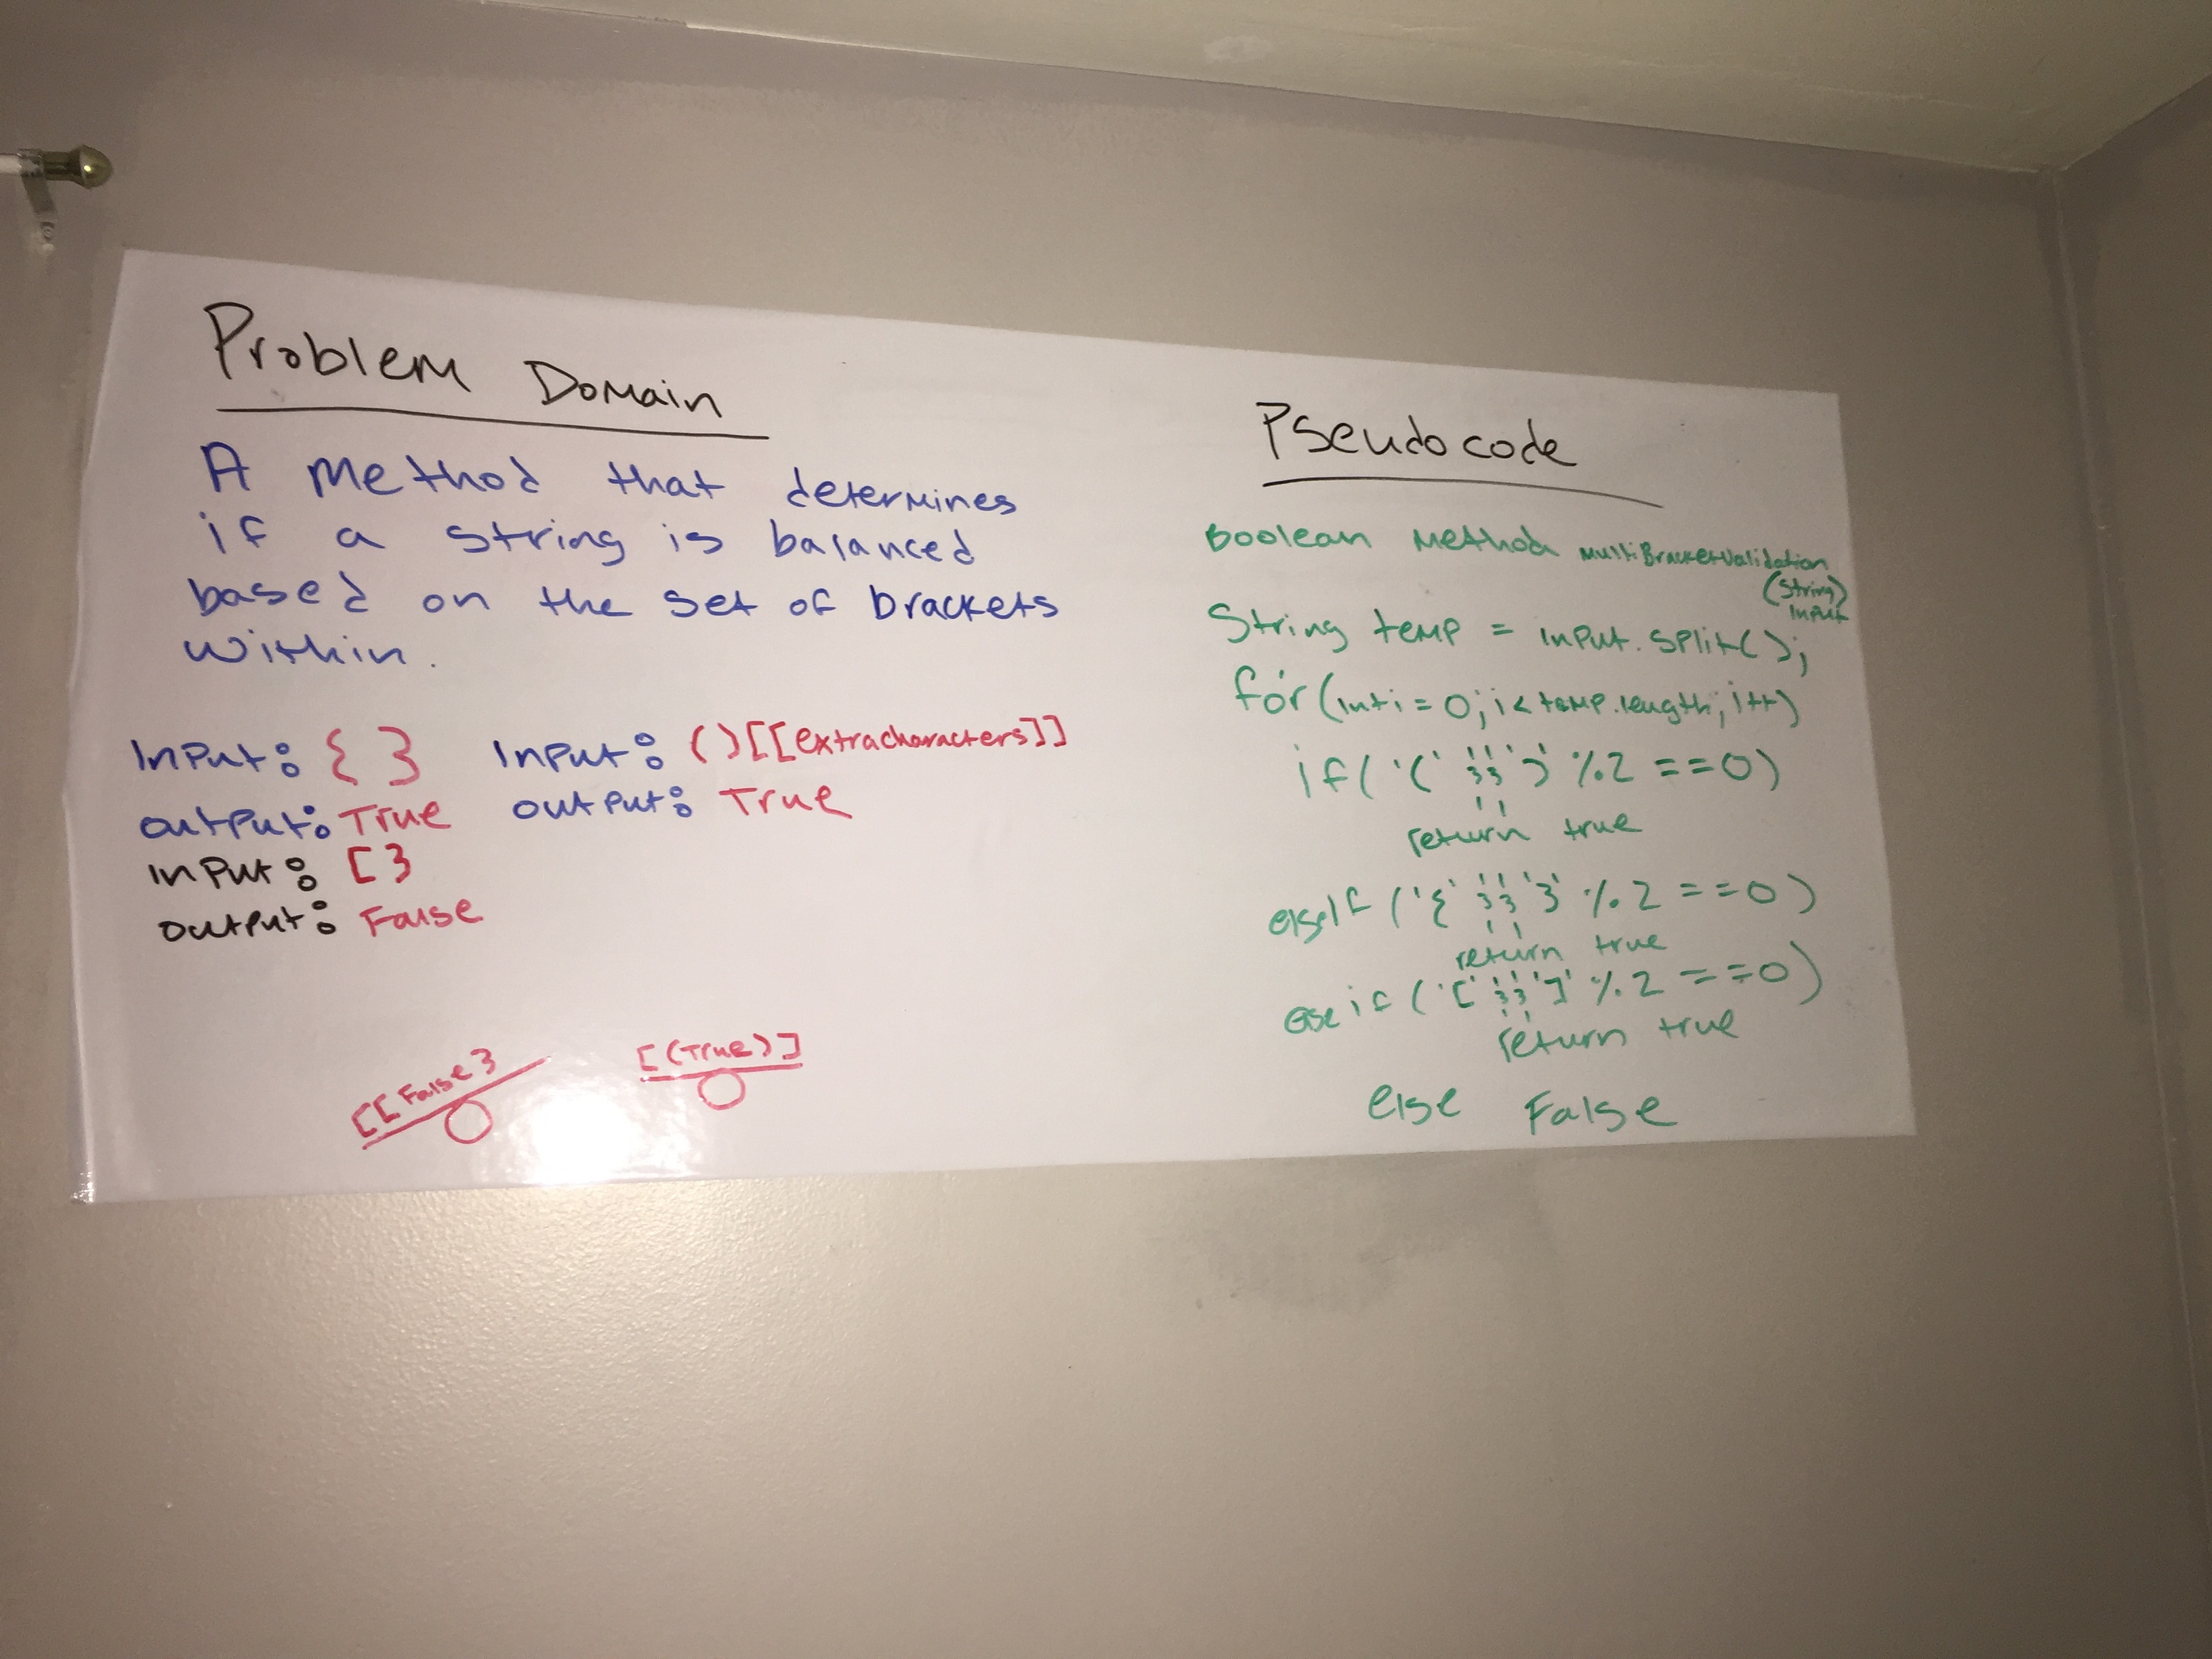 Problem Domain
A method that determines
if a string is balanced
based on the set of brackets
within.
Input: { }
output: True
Input: ()[[extracharacters]]
output: True
input: [}
output: False
[[False}
[(True)]
Pseudocode
Boolean method multiBracketValidation
(String)
input
String temp = input.split();
for(int i = 0; i < temp.length; i++)
if('(' || ')' %2 ==0)
return true
elseif('{' || '}' %2 ==0)
return true
else if('[' || ']' %2 ==0)
return true
else False